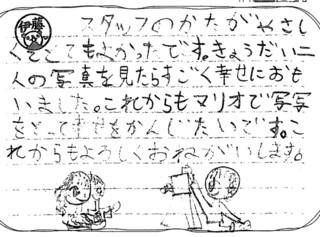 伊藤
スタッフのかたがやさし
くてとてもよかったです。きょうだい二
人の写真を見たらすごく幸せにおも
いました。これからもマリオで写写
をとって幸せをかんじたいです。こ
れからもよろしくおねがいします。